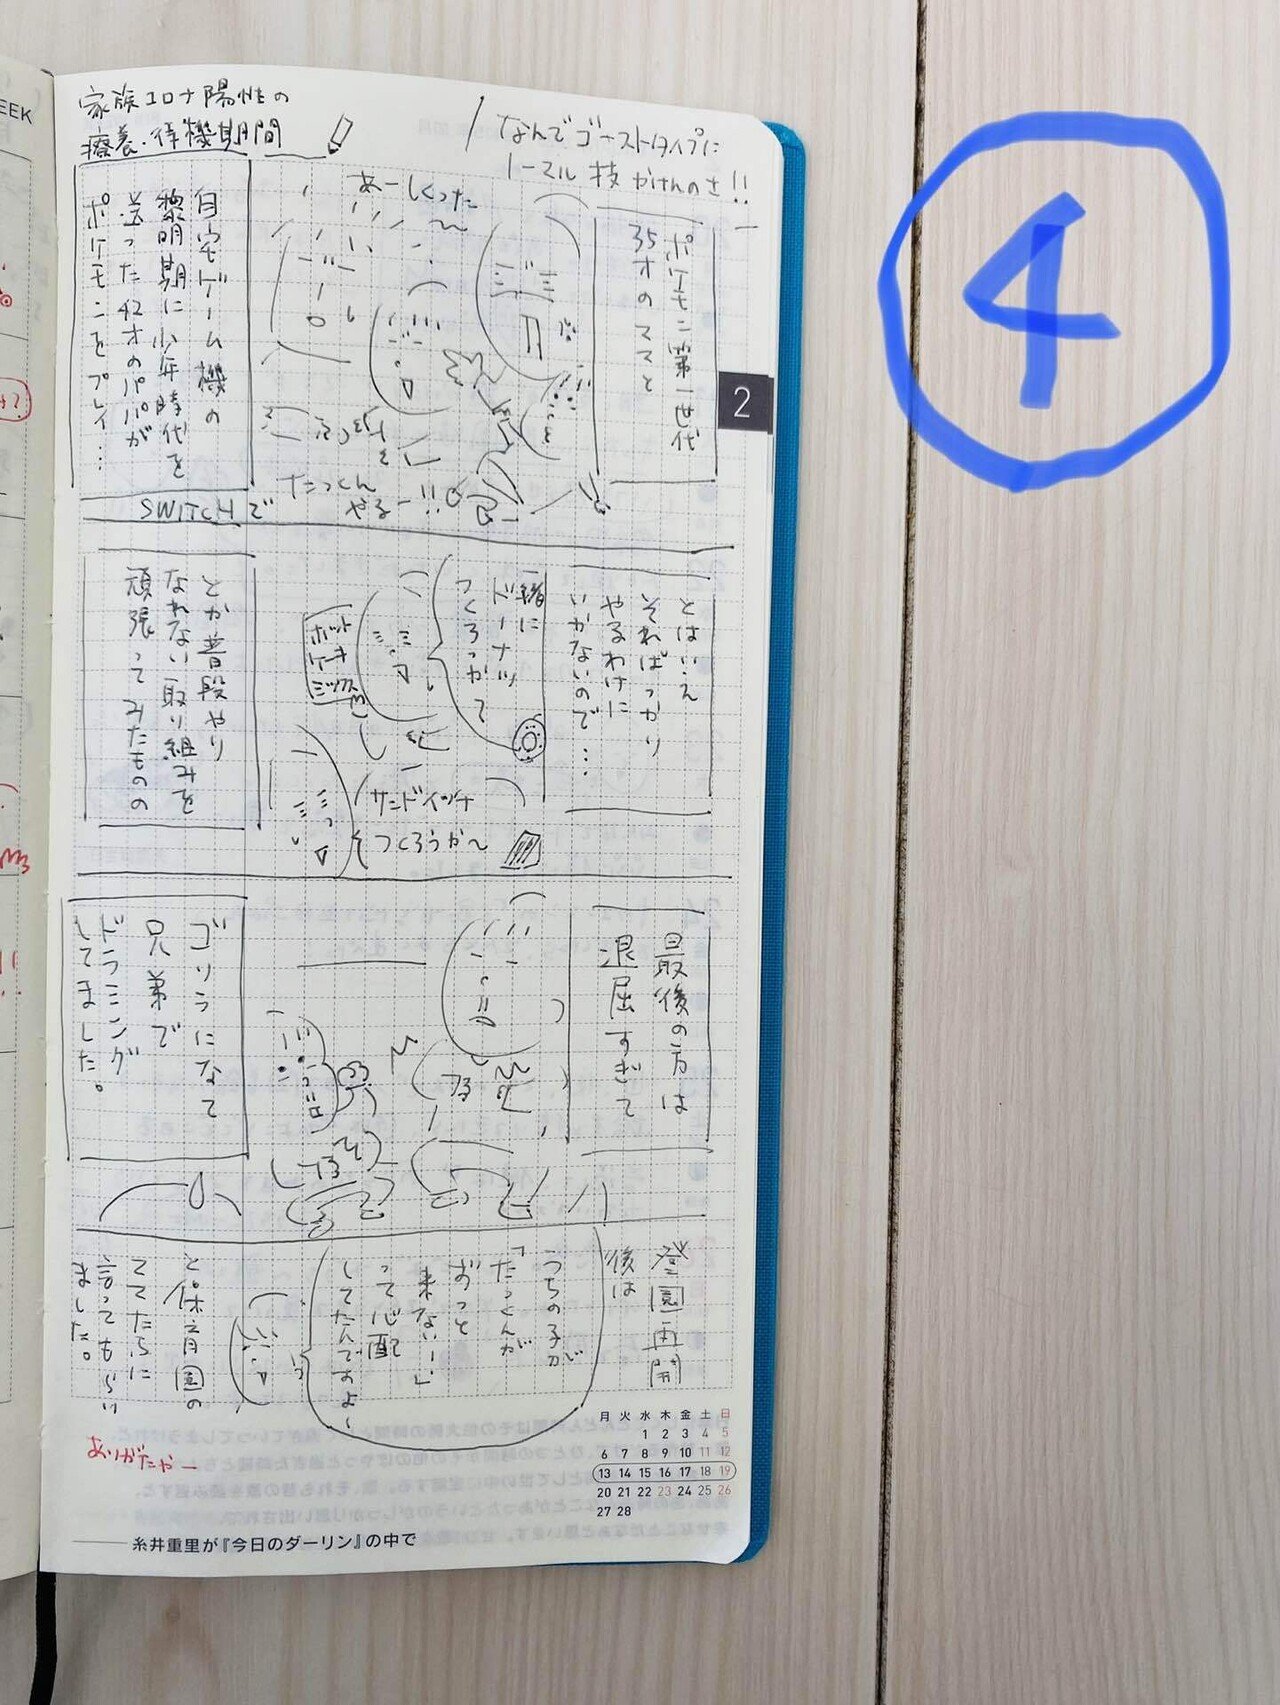 ④
EEK
家族コロナ陽性の
療養・待機期間
なんでゴーストタイプに
ノーマル技かけんのさ!!
ポケモン第一世代
35才のママと
あーしくった
〜
たっくん
やるー!!
自宅ゲーム機の
黎明期に少年時代を
送った42才のパパが
ポケモンをプレイ…
SWITCHで
2
とはいえ
そればっかり
やるわけに
いかないので…
一緒に
ドーナツ
つくろっかて
ホット
ケーキ
ミックス
サンドイッチ
つくろうか〜
とか普段やり
なれない取り組みを
頑張ってみたものの
最後の方は
退屈すぎて
ゴリラになて
兄弟で
ドラミング
してました。
登園再開
後は
うちの子が
「たっくんが
ずっと
来ないー」
って心配
してたんですよ〜
と保育園の
ママたちに
言ってもらい
ました。
ありがたやー
月 火 水 木 金 土 日
1 2 3 4 5
6 7 8 9 10 11 12
13 14 15 16 17 18 19
20 21 22 23 24 25 26
27 28
糸井重里が『今日のダーリン』の中で